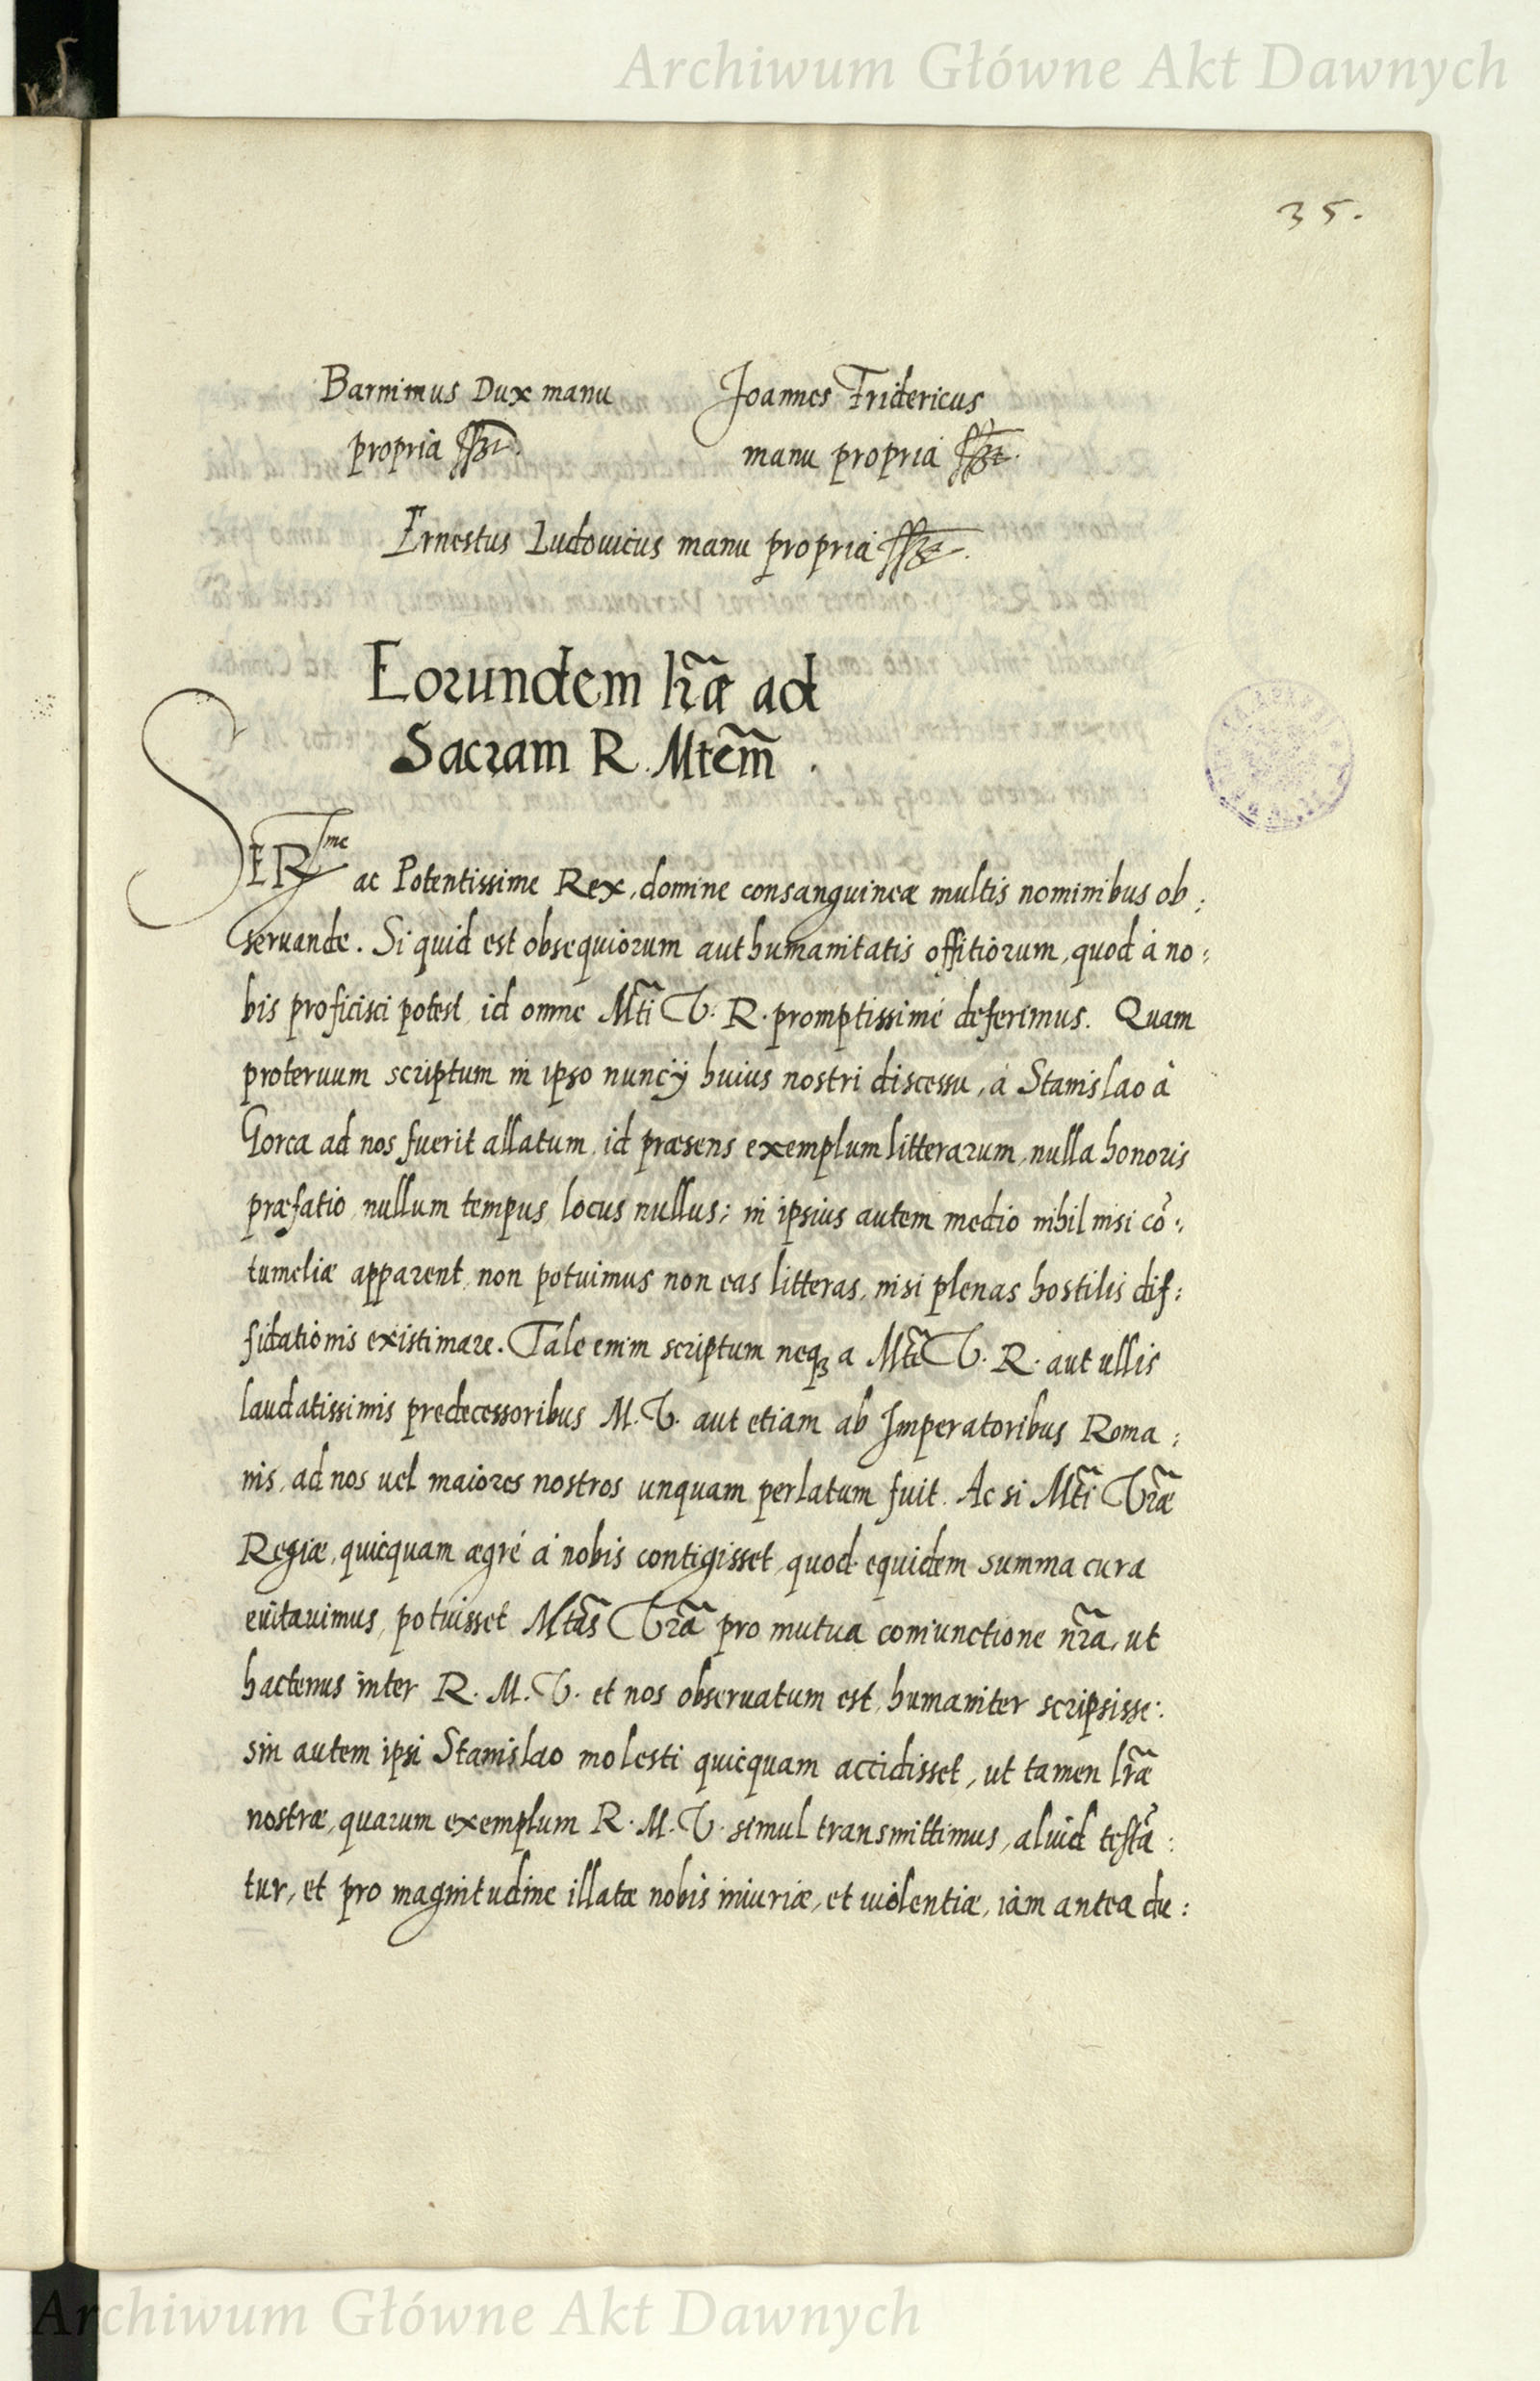 Archiwum Główne Akt Dawnych
35.
Barnimus Dux manu
propria
Joannes Fridericus
manu propria
Ernestus Ludouicus manu propria
Eorundem lr̃æ ad
Sacram R. Mtem̃.
SERme ac Potentissime Rex, domine consanguineæ multis nominibus ob:
seruande. Si quid est obsequiorum aut humanitatis offitiorum, quod à no:
bis proficisci potest, id omne Mti̋ V. R. promptissimé deferimus. Quam
proteruum scriptum in ipso nuncÿ huius nostri discessu, á Stanislao à
Gorca ad nos fuerit allatum, id præsens exemplum litterarum, nulla honoris
præfatio, nullum tempus, locus nullus; in ipsius autem medio nihil nisi cõ:
tumeliæ apparent, non potuimus non eas litteras, nisi plenas hostilis dif:
fidationis existimare. Tale enim scriptum neqꝫ a Mtẽ V. R. aut ullis
laudatissimis predecessoribus M. V. aut etiam ab Imperatoribus Roma:
nis, ad nos uel maiores nostros unquam perlatum fuit. Ac si Mtĩ Vr̃æ
Regiæ, quicquam ægré á nobis contigisset, quod equidem summa cura
euitauimus, potuisset Mtãs Vr̃a pro mutua coniunctione nr̃a, ut
hactenus inter R. M. V. et nos obseruatum est, humaniter scripsisse:
sin autem ipsi Stanislao molesti quicquam accidisset, ut tamen lr̃æ
nostræ, quarum exemplum R. M. V. simul transmittimus, aliud testã:
tur, et pro magnitudine illatæ nobis iniuriæ, et uiolentiæ, iam antea du:
Archiwum Główne Akt Dawnych